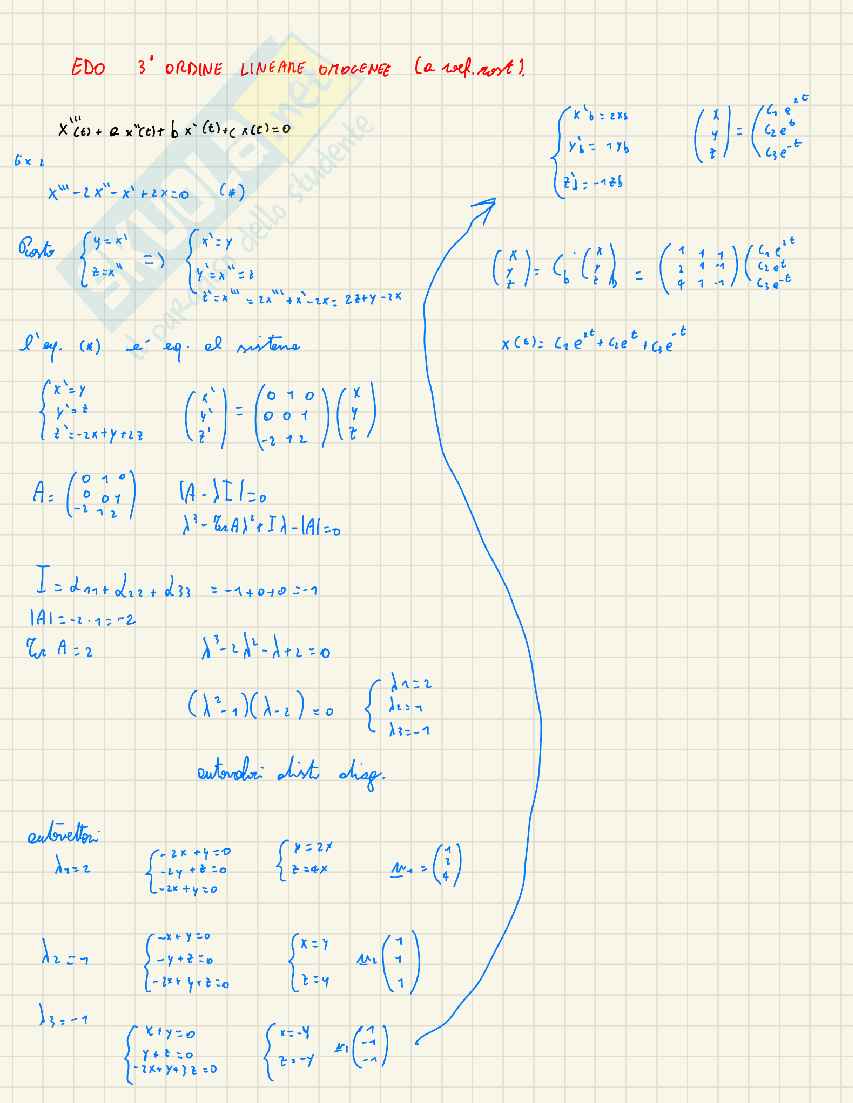 EDO 3° ORDINE LINEARE OMOGENEE (a coef. cost).
x'''(t) + a x''(t) + b x'(t) + c x(t) = 0
Ex 1
x''' - 2x'' - x' + 2x = 0 (*)
Posto { y = x' => { x' = y
z = x'' y' = x'' = z
z' = x''' = 2x'' + x' - 2x = 2z + y - 2x
l'eq. (*) e' eq. al sistema
{ x' = y
y' = z
z' = -2x + y + 2z
( x' y' z' ) = ( 0 1 0
0 0 1
-2 1 2 ) ( x y z )
A = ( 0 1 0
0 0 1
-2 1 2 )
|A - λI| = 0
λ³ - Tr A λ² + I λ - |A| = 0
I = α11 + α22 + α33 = -1 + 0 + 0 = -1
|A| = -2 · 1 = -2
Tr A = 2
λ³ - 2λ² - λ + 2 = 0
(λ² - 1)(λ - 2) = 0 { λ1 = 2
λ2 = 1
λ3 = -1
autovalori dist diag.
autovettori
λ1 = 2
{ -2x + y = 0
-2y + z = 0
-2x + y = 0
{ y = 2x
z = 4x
( 1 2 4 )
λ2 = 1
{ -x + y = 0
-y + z = 0
-2x + y + z = 0
{ x = y
z = y
( 1 1 1 )
λ3 = -1
{ x + y = 0
y + z = 0
-2x + y + 3z = 0
{ x = -y
z = -y
( 1 -1 -1 )
{ x'b = 2xb
y'b = 1yb
z'b = -1zb
( x y z ) = ( c1 e^2t
c2 e^t
c3 e^-t )
( x y z ) = Cb · ( x y z )b = ( 1 1 1
2 1 -1
4 1 -1 ) ( c1 e^2t
c2 e^t
c3 e^-t )
x(t) = c1 e^2t + c2 e^t + c3 e^-t
SKUOLA.net
il paradiso dello studente